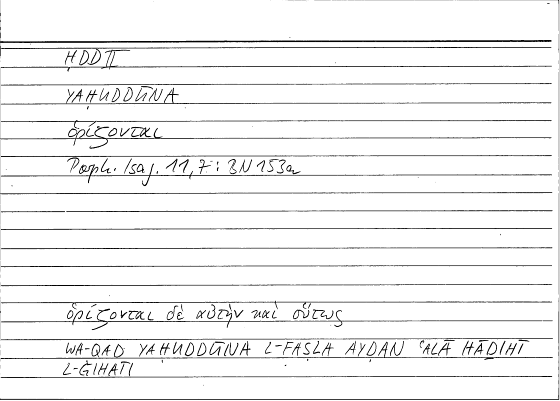 ḤDD II
YAḤUDDŪNA
ὁρίζονται
Porph. Isag. 11,7: BN 153a
ὁρίζονται δὲ αὐτὴν καὶ οὕτως
WA-QAD YAḤUDDŪNA L-FAṢLA AYḌAN ʿALĀ HĀḎIHĪ
L-ǦIHATI